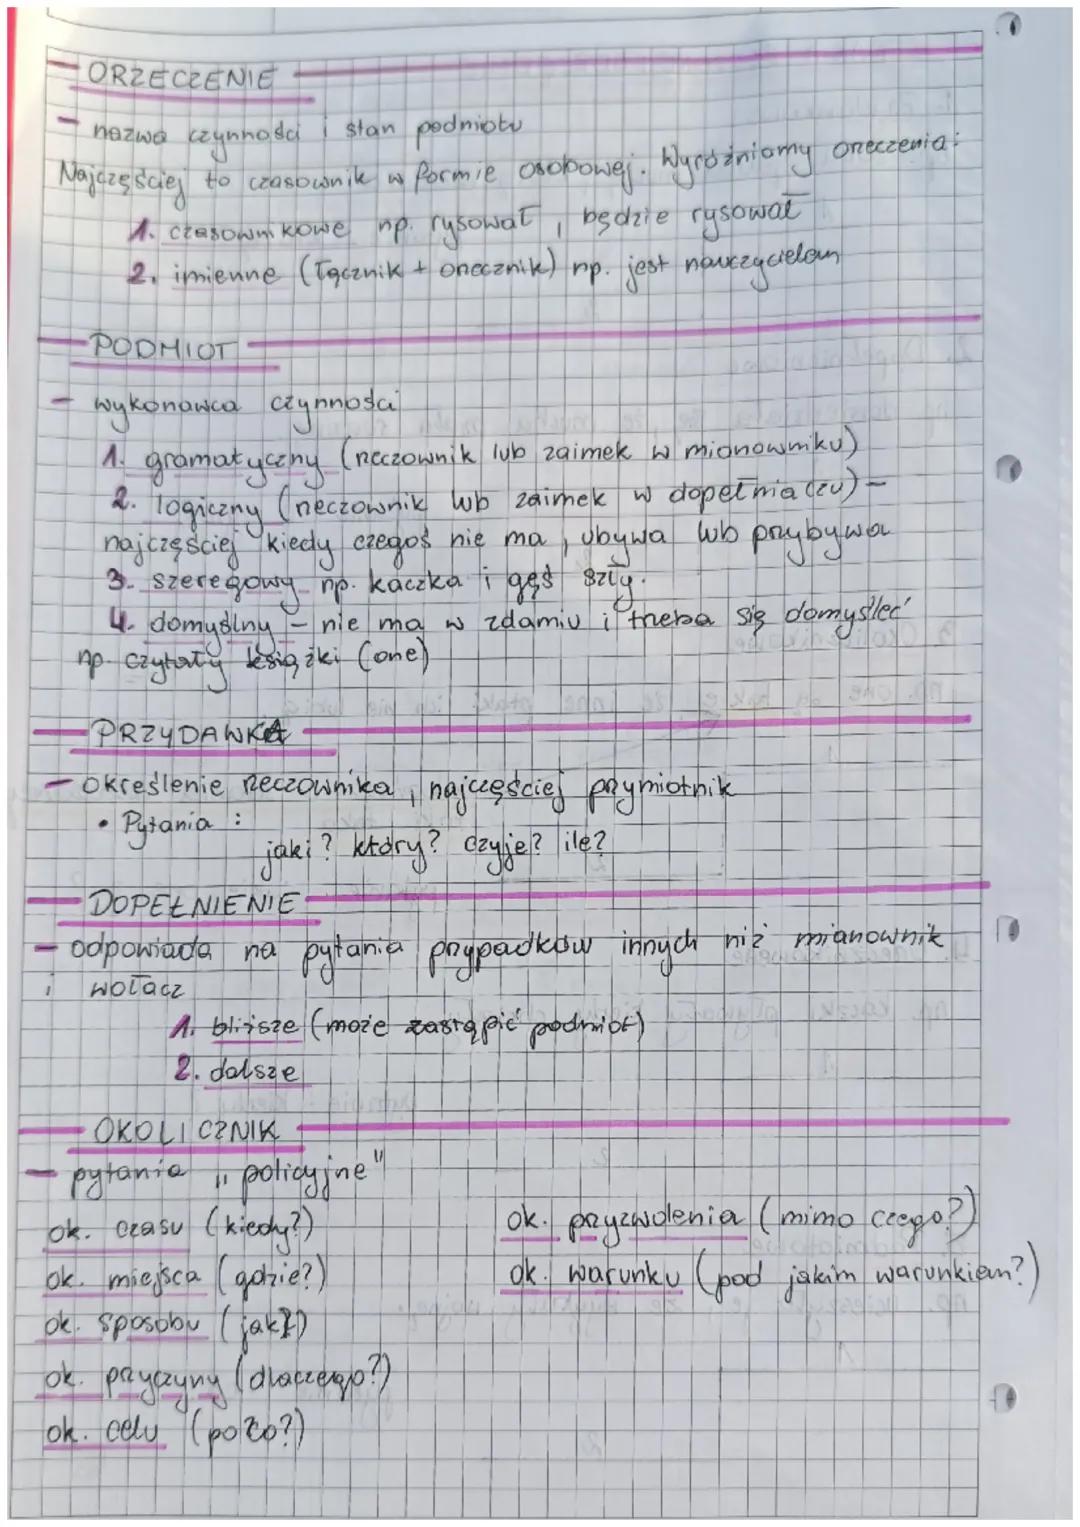 ORZECZENIE
- nazwa czynności i stan podmiotu
Najczęściej to czasownik w formie osobowej. Wyróżniamy orzeczenia:
1. czasownikowe np. rysował, będzie rysował
2. imienne (łącznik + orzecznik) np. jest nauczycielem
PODMIOT
- wykonawca czynności
1. gramatyczny (rzeczownik lub zaimek w mianowniku)
2. logiczny (rzeczownik lub zaimek w dopełniaczu) -
najczęściej kiedy czegoś nie ma, ubywa lub przybywa
3. szeregowy np. kaczka i gęś szły.
4. domyślny - nie ma w zdaniu i trzeba się domyśleć
np. czytały książki (one)
PRZYDAWKA
- określenie rzeczownika, najczęściej przymiotnik
• Pytania :
jaki? który? czyje? ile?
DOPEŁNIENIE
- odpowiada na pytania przypadków innych niż mianownik
i wołacz
1. bliższe (może zastąpić podmiot)
2. dalsze
OKOLICZNIK
- pytania „policyjne"
ok. czasu (kiedy?)
ok. miejsca (gdzie?)
ok. sposobu (jak?)
ok. przyczyny (dlaczego?)
ok. celu (po co?)
ok. przyzwolenia (mimo czego?)
ok. warunku (pod jakim warunkiem?)